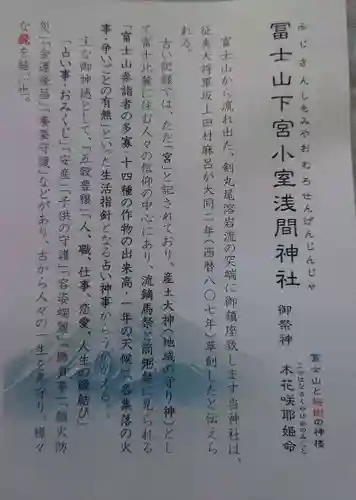 ふじさんしもみやおむろせんげんじんじゃ
冨士山下宮小室浅間神社
御祭神
富士山と桜樹の神様
木花咲耶姫命
富士山から流れ出た、剣丸尾溶岩流の突端に御鎮座致します当神社は、
征夷大将軍坂上田村麻呂が大同二年(西暦八〇七年)草創したと伝えら
れる。
古い記録では、ただ「宮」と記されており、産土大神(地域の守り神)とし
て富士北麓に住む人々の信仰の中心にあり、流鏑馬祭・筒粥祭に見られる
「富士山参詣者の多寡・十四種の作物の出来高・一年の天候」「各集落の火
事・争いごとの有無」といった生活指針となる占い神事から
主な御神徳として、「五穀豊穣」「人、職、仕事、恋愛、人生の縁結び」
「占い事・おみくじ」「安産」「子供の守護」「容姿端麗」「勝負事」「鎮火防
災」「金運隆昌」「養蚕守護」などがあり、古から人々の一生を見守り、様々
な縁を結